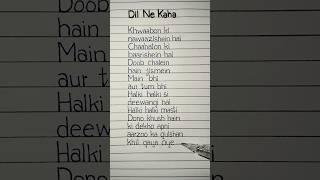 Dil Ne Kaha
Khwaabon ki
nawaazishein hai
Chaahaton ki
baarishein hai
Doob chalein
hain jismein
Main bhi
aur tum bhi
Halki halki si
deewangi hai
Halki halki masti
Dono khush hain
ki dekho apni
aarzoo ka gulshan
Khil gaya oye